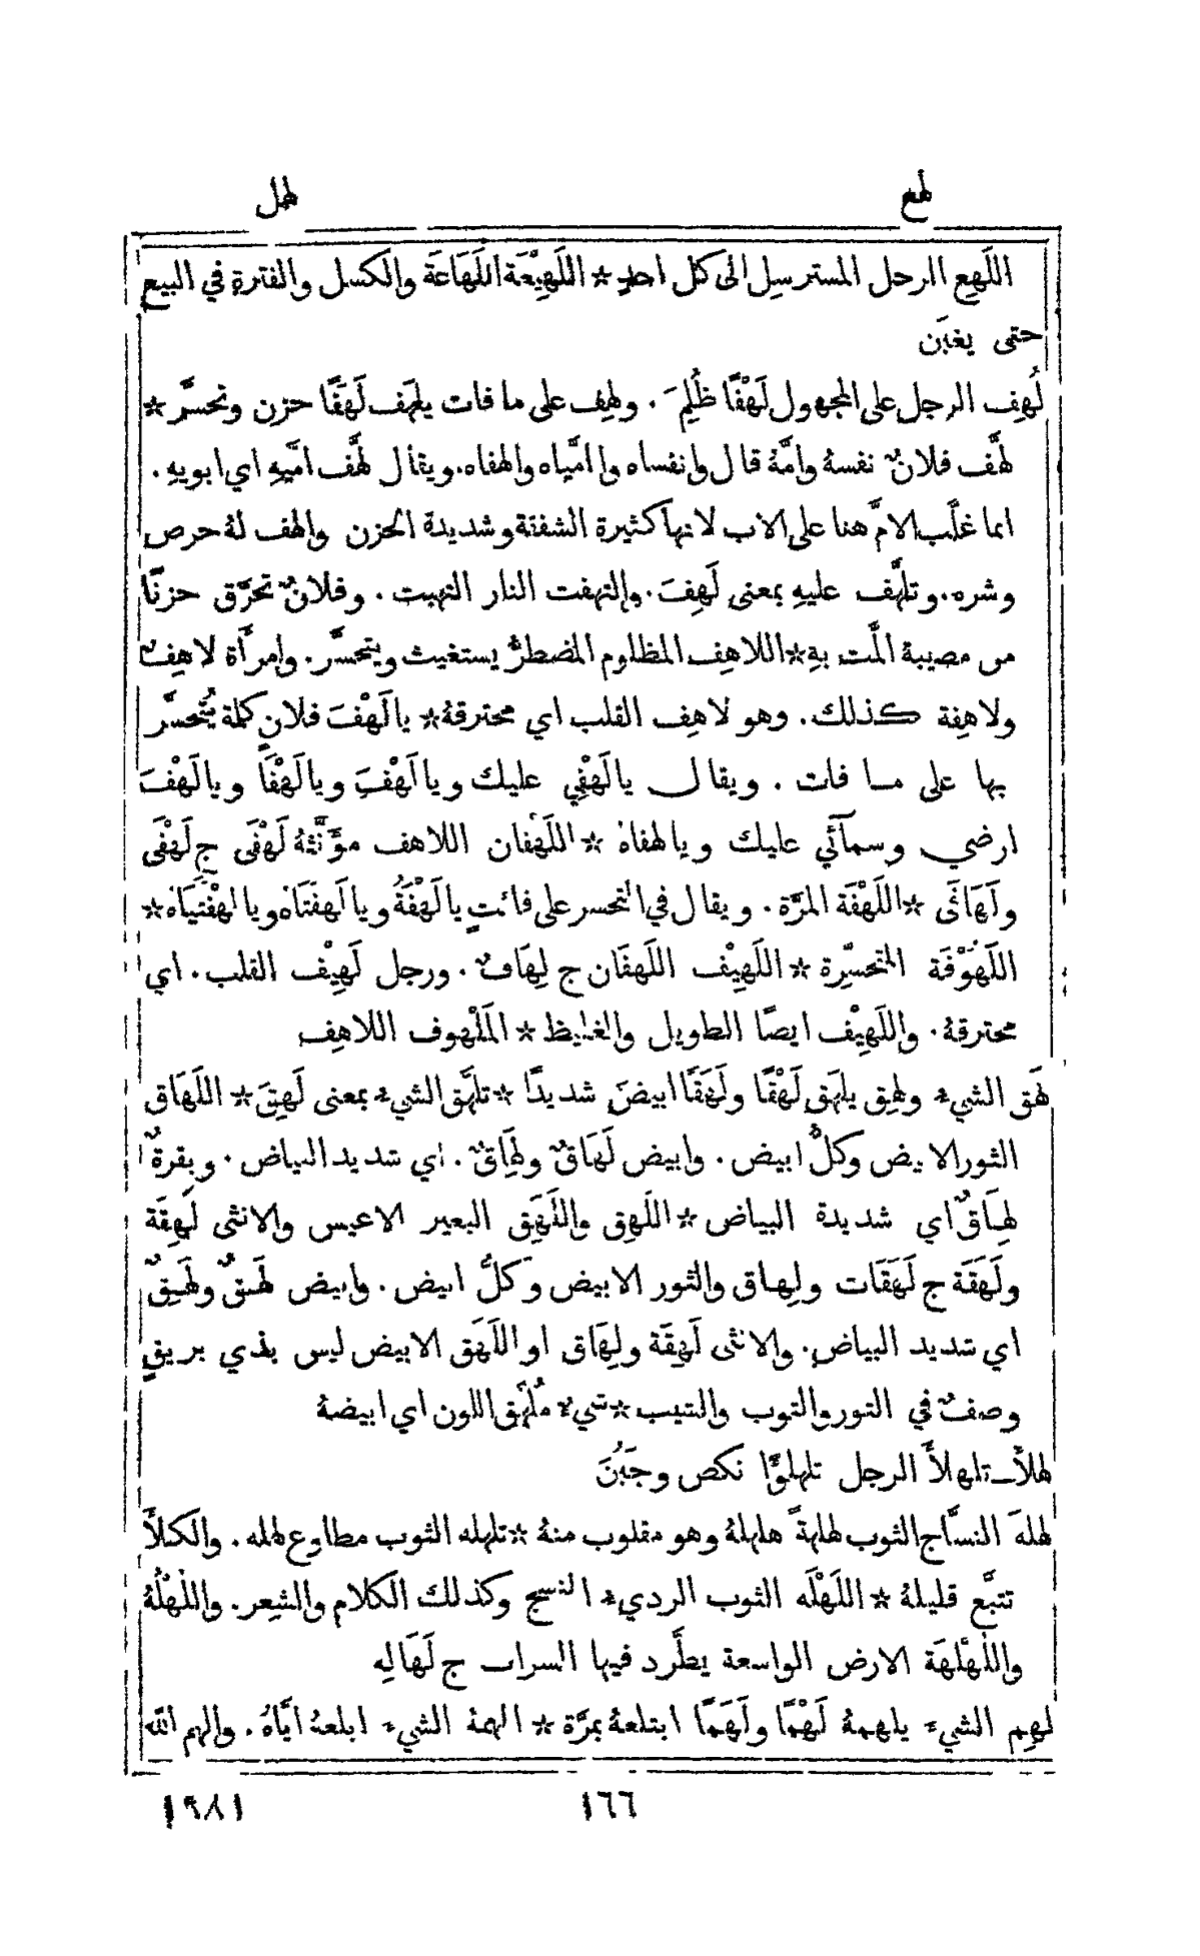 لهع
لهل
اللَهِع الرجل المسترسِل الى كل احدٍ * اللَهِيْعَة اللَهَاعَة والكسل والفترة في البيع
حتى يغبَن
لُهِف الرجل على المجهول لَهْفًا ظُلِمَ . ولهِف على ما فات يلهَف لَهَفًا حزن وتحسَّر *
لهَّف فلانٌ نفسهُ وامَّهُ قال وانفساه وا امَّياه والهفاه. ويقال لهَّف امَّيهِ اي ابويهِ .
انما غلَّب الامَّ هنا على الاب لانها كثيرة الشفقة وشديدة الحزن والهف لهُ حرص
وشره. وتلهَّف عليهِ بمعنى لَهِفَ . والتهفت النار التهبت . وفلانٌ تحرَّق حزنًا
من مصيبة المَّت بهِ * اللاهِف المظلوم المضطرُّ يستغيث ويتحسَّر. وامرأَة لاهِفٌ
ولاهِفة كذلك. وهو لاهِف القلب اي محترقهُ * يا لَهْفَ فلانٍ كلمة يُتحسَّر
بها على ما فات . ويقال يا لَهْفِي عليك ويا لَهْفِ ويا لَهْفَا ويا لَهْفَ
ارضي وسمآئي عليك ويا لهفاه * اللَهْفان اللاهف مؤَنَّثهُ لَهْفَى ج لَهْفَى
ولَهَافَى * اللَهْفَة المرَّة . ويقال في التحسر على فائتٍ يا لَهْفَةُ ويا لَهفَتَاه ويا لهْفَتَيَاه *
اللَهُوْفَة المتحسِّرة * اللَهِيْف اللَهفَان ج لِهَافٌ . ورجل لَهِيْف القلب . اي
محترقهُ . واللَهِيْف ايضًا الطويل والغليظ * المَلْهُوف اللاهِف
لهَق الشيءُ ولهِق يلهَق لَهْقًا ولَهَقًا ابيضَ شديدًا * تلهَّق الشيءُ بمعنى لَهِقَ * اللَهَاق
الثور الابيض وكلُّ ابيض . وابيض لَهَاقٌ ولِهَاقٌ . اي شديد البياض . وبقرةٌ
لِهَاقٌ اي شديدة البياض * اللَهِق واللَهَق البعير الاعيس والانثى لَهِقَة
ولَهَقَة ج لَهَقَات ولِهاق والثور الابيض وكلُّ ابيض . وابيض لَهَقٌ ولَهِقٌ
اي شديد البياض. والانثى لَهِقَة ولِهَاق او اللَهَق الابيض ليس بذي بريقٍ
وصفٌ في الثور والثوب والشيب * شيءٌ مُلَهَّق اللون اي ابيضهُ
لهلأَ - تلهلأَ الرجل تلهلؤًا نكص وجَبُنَ
لهلهَ النسَّاج الثوب لهلهةً هلهلهُ وهو مقلوب منهُ * تلهله الثوب مطاوع لهله . والكلأَ
تتبَّع قليلهُ * اللَهْلَه الثوب الرديءُ النسج وكذلك الكلام والشِعر. واللُهْلُهُ
واللُهْلُهَة الارض الواسعة يطَّرد فيها السراب ج لَهَالِه
لهِم الشيءَ يلهمهُ لَهْمًا ولَهَمًا ابتلعهُ بمرَّة * الهمهُ الشيءَ ابلعهُ ايَّاهُ . والهم الله
١٦٦
١٩٨١